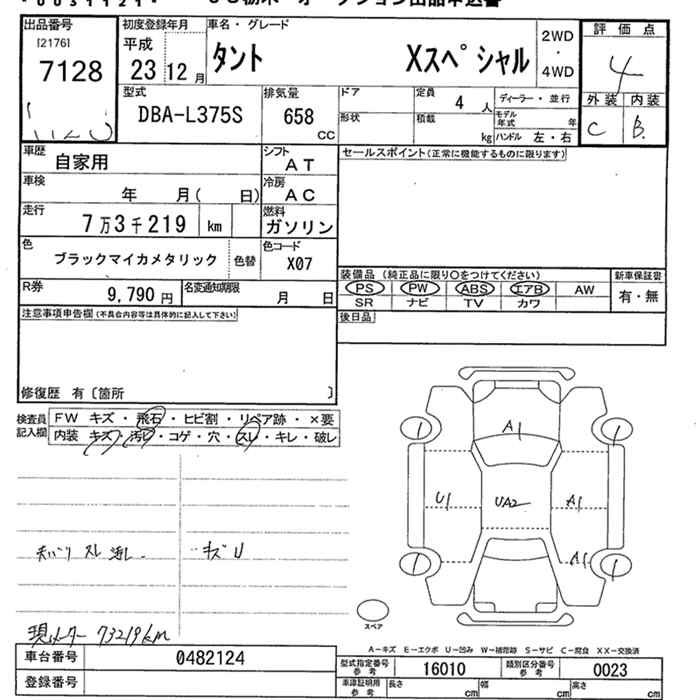 出品番号 初度登録年月 車名・グレード 評価点
[2176]
7128 平成 23 12月 タント Xスペシャル 2WD・4WD 4
型式 DBA-L375S 排気量 658 cc ドア 定員 4人 ディーラー・並行 外装 内装
形状 積載 kg モデル年式 年 ハンドル 左・右 C B
車歴 自家用 シフト AT セールスポイント(正常に機能するものに限ります)
車検 年 月( 日) 冷房 AC
走行 7万3千219 km 燃料 ガソリン
色 ブラックマイカメタリック 色替 色コード X07
装備品 (純正品に限り○をつけてください) 新車保証書
R券 9,790円 名変通知期限 月 日 PS PW ABS エアB AW 有・無
SR ナビ TV カワ
注意事項申告欄(不具合内容等は具体的に記入して下さい) 後日品
修復歴 有〔箇所 〕
検査員記入欄 FW キズ・飛石・ヒビ割・リペア跡・×要
内装 キズ・汚れ・コゲ・穴・スレ・キレ・破レ
A1
U1 UA2 A1
A1
スレ キズ U
スペア
現メーター 73219km
A-キズ E-エクボ U-凹み W-補修跡 S-サビ C-腐食 XX-交換済
車台番号 0482124 型式指定番号 参考 16010 類別区分番号 参考 0023
登録番号 車庫証明用 参考 長さ cm 幅 cm 高さ cm